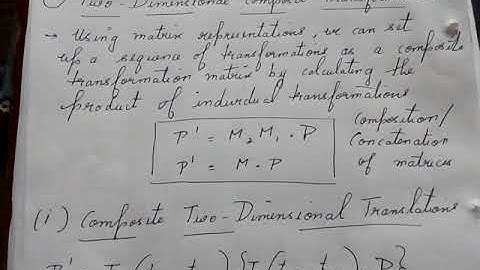 Two-Dimensional Composite Transformations
→ Using matrix representations, we can set
up a sequence of transformations as a composite
transformation matrix by calculating the
product of individual transformations
P' = M₂ M₁ . P
P' = M . P
Composition/
Concatenation
of matrices
(i) Composite Two-Dimensional Translations